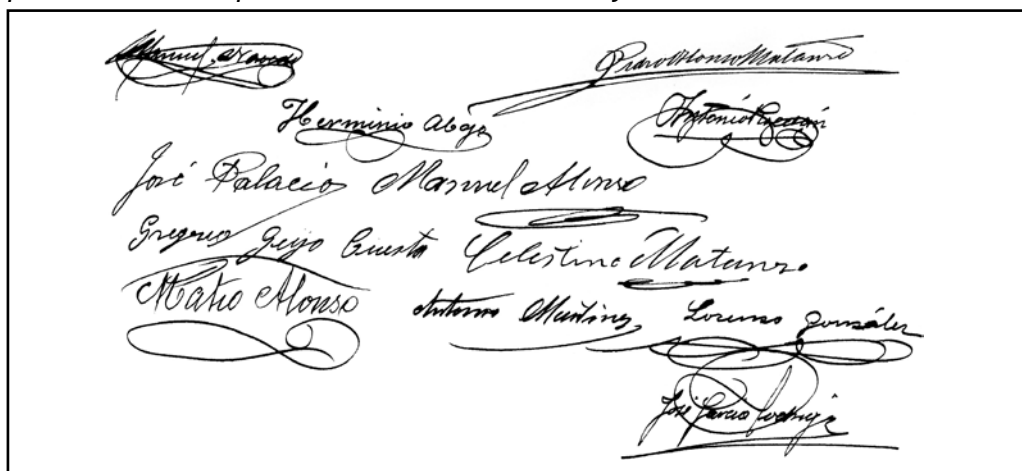 Manuel
Pedro Alonso Matanzo
Herminio Abajo
Antonio
José Palacio Manuel Alonso
Gregorio Geijo Cuesta Celestino Matanzo
Mateo Alonso Antonio Martínez Lorenzo González
José García Rodrig